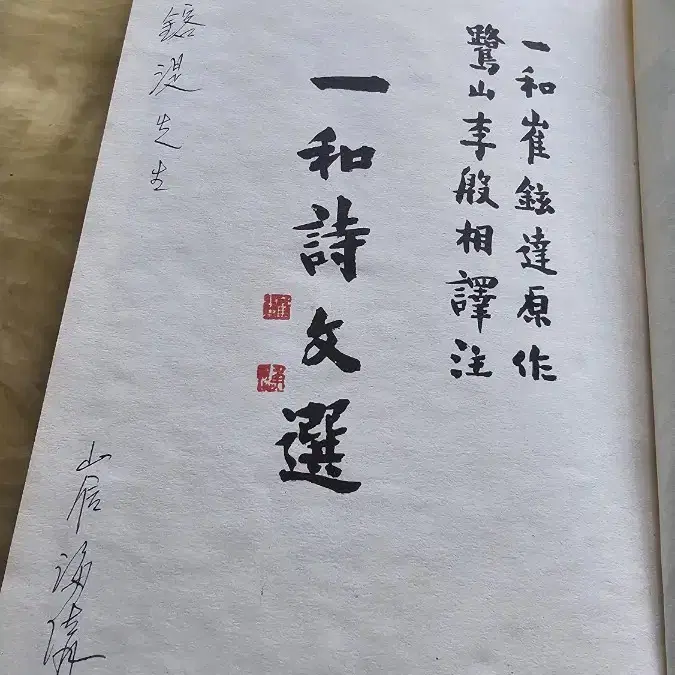 一和崔鉉達原作
鷺山李殷相譯注
一和詩文選
先生
山居